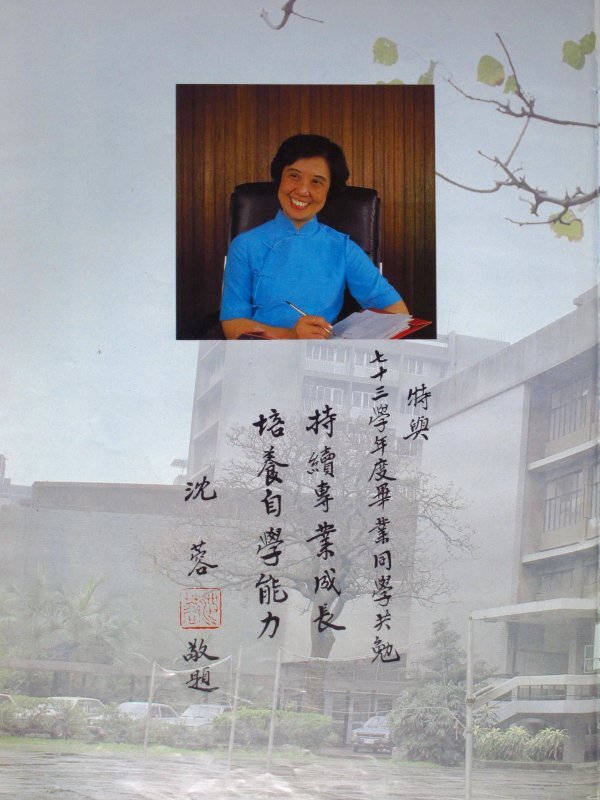 特與
七十三學年度畢業同學共勉
持續專業成長
培養自學能力
沈蓉敬題
沈蓉